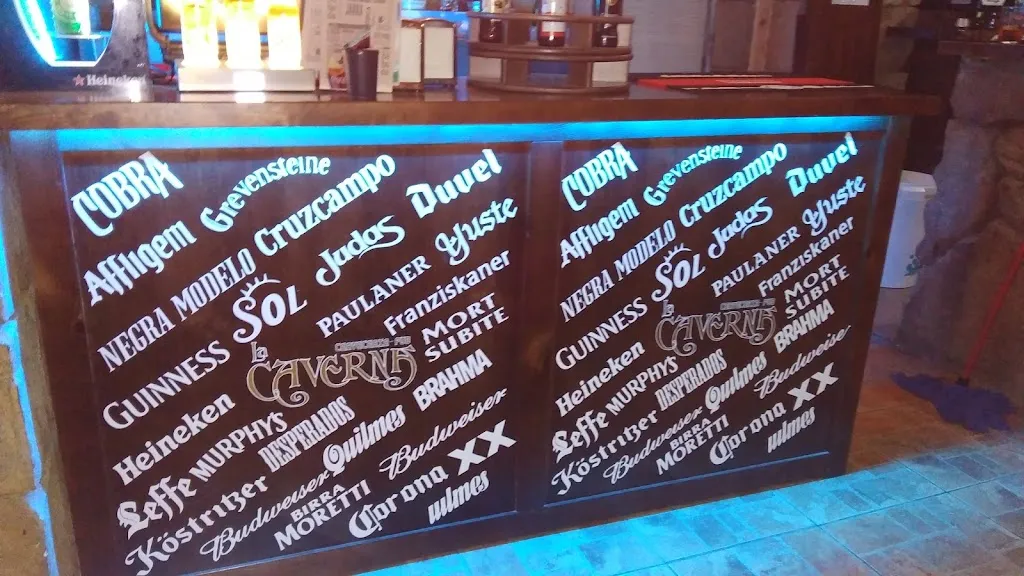 Heineken
COBRA
Grevensteine
Affligem
Cruzcampo
Duvel
NEGRA MODELO
Judas
Yuste
SOL
PAULANER
Franziskaner
GUINNESS
La
CAVERNA
MORT
SUBITE
Heineken
MURPHY'S
DESPERADOS
Quilmes
BRAHMA
Leffe
Köstritzer
Budweiser
BIRRA
MORETTI
Budweiser
Corona
XX
uilmes
COBRA
Grevensteine
Affligem
Cruzcampo
Duvel
NEGRA MODELO
Judas
Yuste
SOL
PAULANER
Franziskaner
GUINNESS
La
CAVERNA
MORT
SUBITE
Heineken
MURPHY'S
DESPERADOS
Quilmes
BRAHMA
Leffe
Köstritzer
Budweiser
BIRRA
MORETTI
Budweise
Corona
XX
uilmes